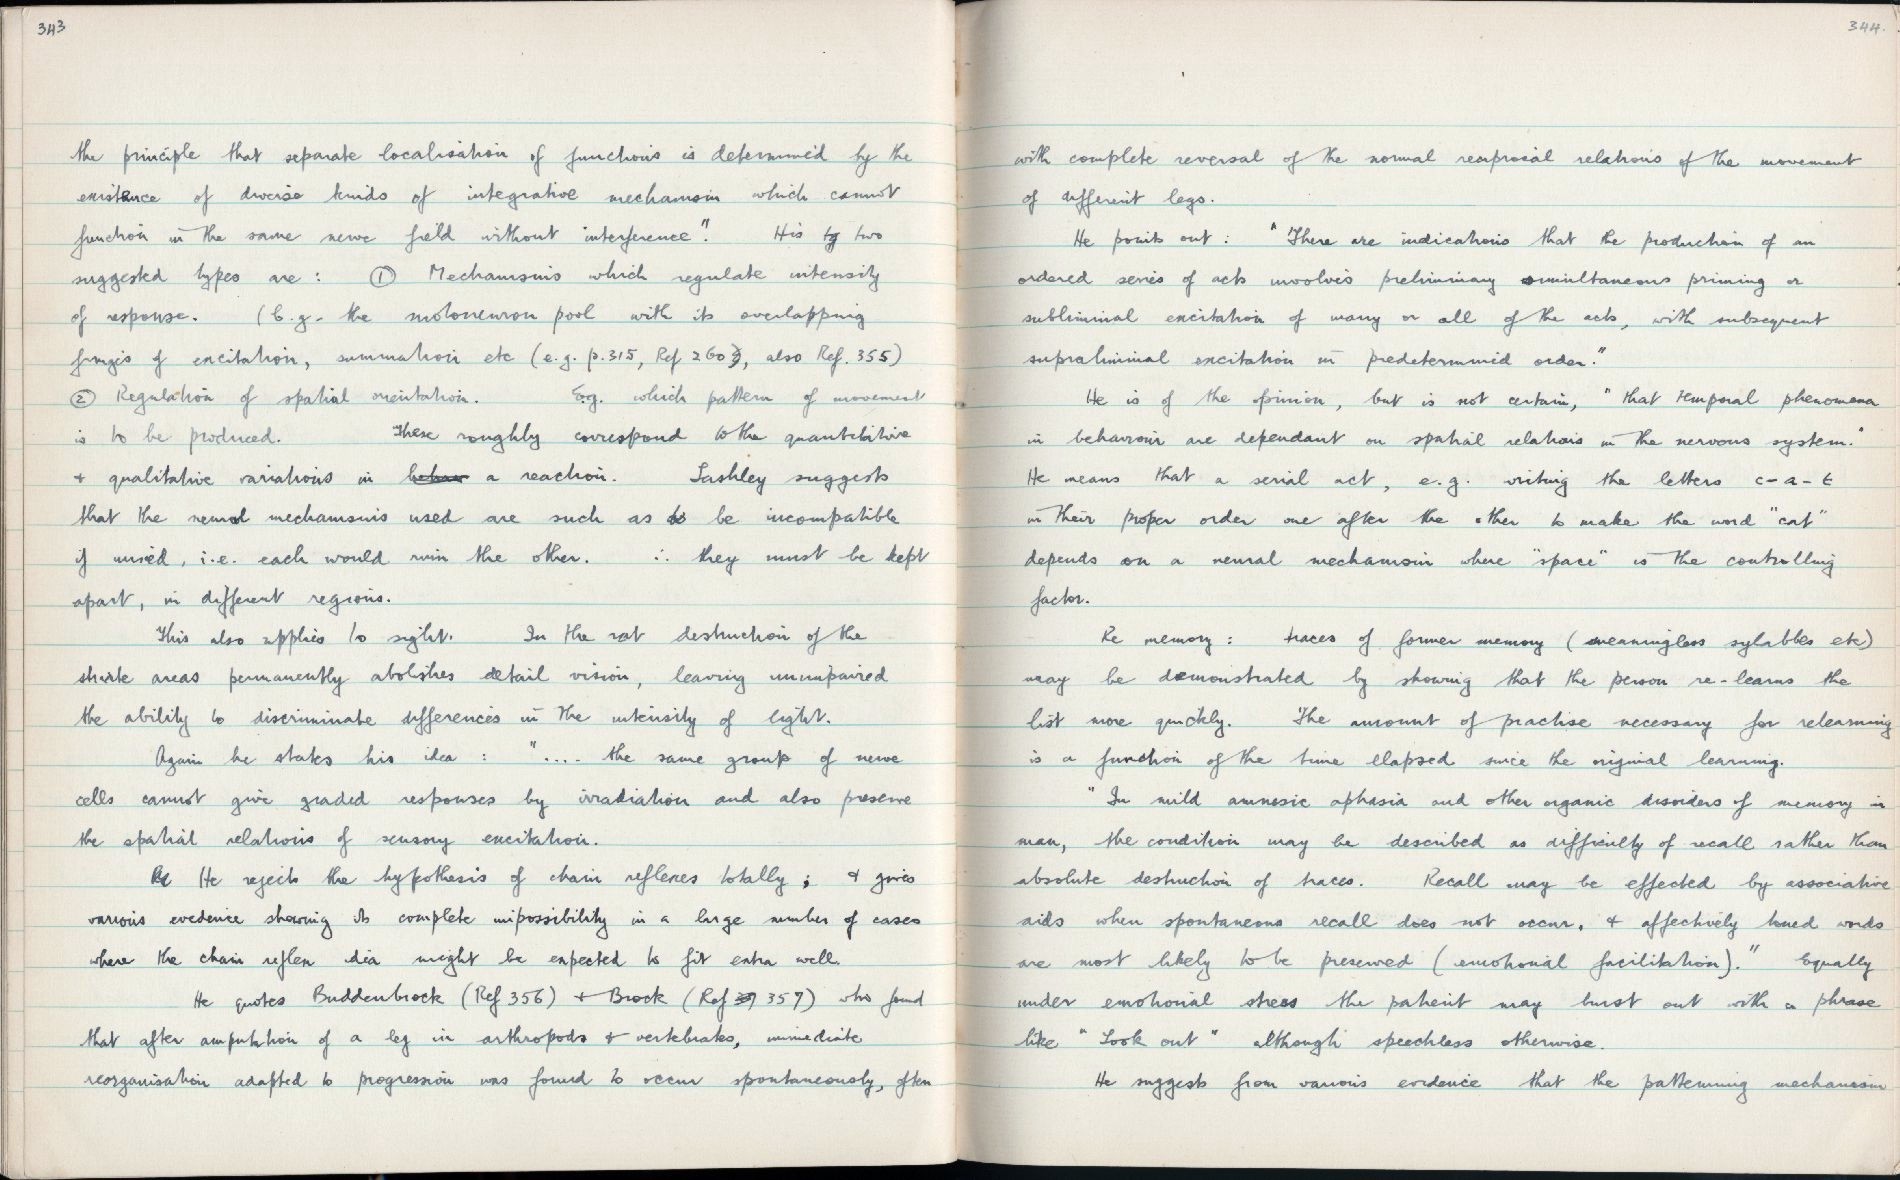 343
the principle that separate localisation of functions is determined by the
existence of diverse kinds of integrative mechanism which cannot
function in the same nerve field without interference". His two
suggested types are : ① Mechanisms which regulate intensity
of response. (E.g. the motoneuron pool with its overlapping
fringes of excitation, summation etc (e.g. p.315, Ref 260, also Ref. 355)
② Regulation of spatial orientation. E.g. which pattern of movement
is to be produced. These roughly correspond to the quantitative
& qualitative variations in a reaction. Lashley suggests
that the neural mechanisms used are such as to be incompatible
if mixed, i.e. each would ruin the other. ∴ they must be kept
apart, in different regions.
This also applies to sight. In the rat destruction of the
striate areas permanently abolishes detail vision, leaving unimpaired
the ability to discriminate differences in the intensity of light.
Again he states his idea : ".... the same group of nerve
cells cannot give graded responses by irradiation and also preserve
the spatial relations of sensory excitation.
He rejects the hypothesis of chain reflexes totally ; & gives
various evedence showing its complete impossibility in a large number of cases
where the chain reflex idea might be expected to fit extra well.
He quotes Buddenbrock (Ref 356) & Brock (Ref 357) who found
that after amputation of a leg in arthropods & vertebrates, immediate
reorganisation adapted to progression was found to occur spontaneously, often
344.
with complete reversal of the normal reciprocal relations of the movement
of different legs.
He points out : "There are indications that the production of an
ordered series of acts involves preliminary simultaneous priming or
subliminal excitation of many or all of the acts, with subsequent
supraliminal excitation in predetermined order."
He is of the opinion, but is not certain, "that temporal phenomena
in behaviour are dependant on spatial relations in the nervous system."
He means that a serial act, e.g. writing the letters c-a-t
in their proper order one after the other to make the word "cat"
depends on a neural mechanism where "space" is the controlling
factor.
Re memory : traces of former memory (meaningless sylabbles etc)
may be demonstrated by showing that the person re-learns the
list more quickly. The amount of practise necessary for relearning
is a function of the time elapsed since the original learning.
"In mild amnesic aphasia and other organic disorders of memory in
man, the condition may be described as difficulty of recall rather than
absolute destruction of traces. Recall may be effected by associative
aids when spontaneous recall does not occur, & affectively toned words
are most likely to be preserved (emotional facilitation)." Equally
under emotional stress the patient may burst out with a phrase
like "Look out" although speechless otherwise.
He suggests from various evidence that the patterning mechanism